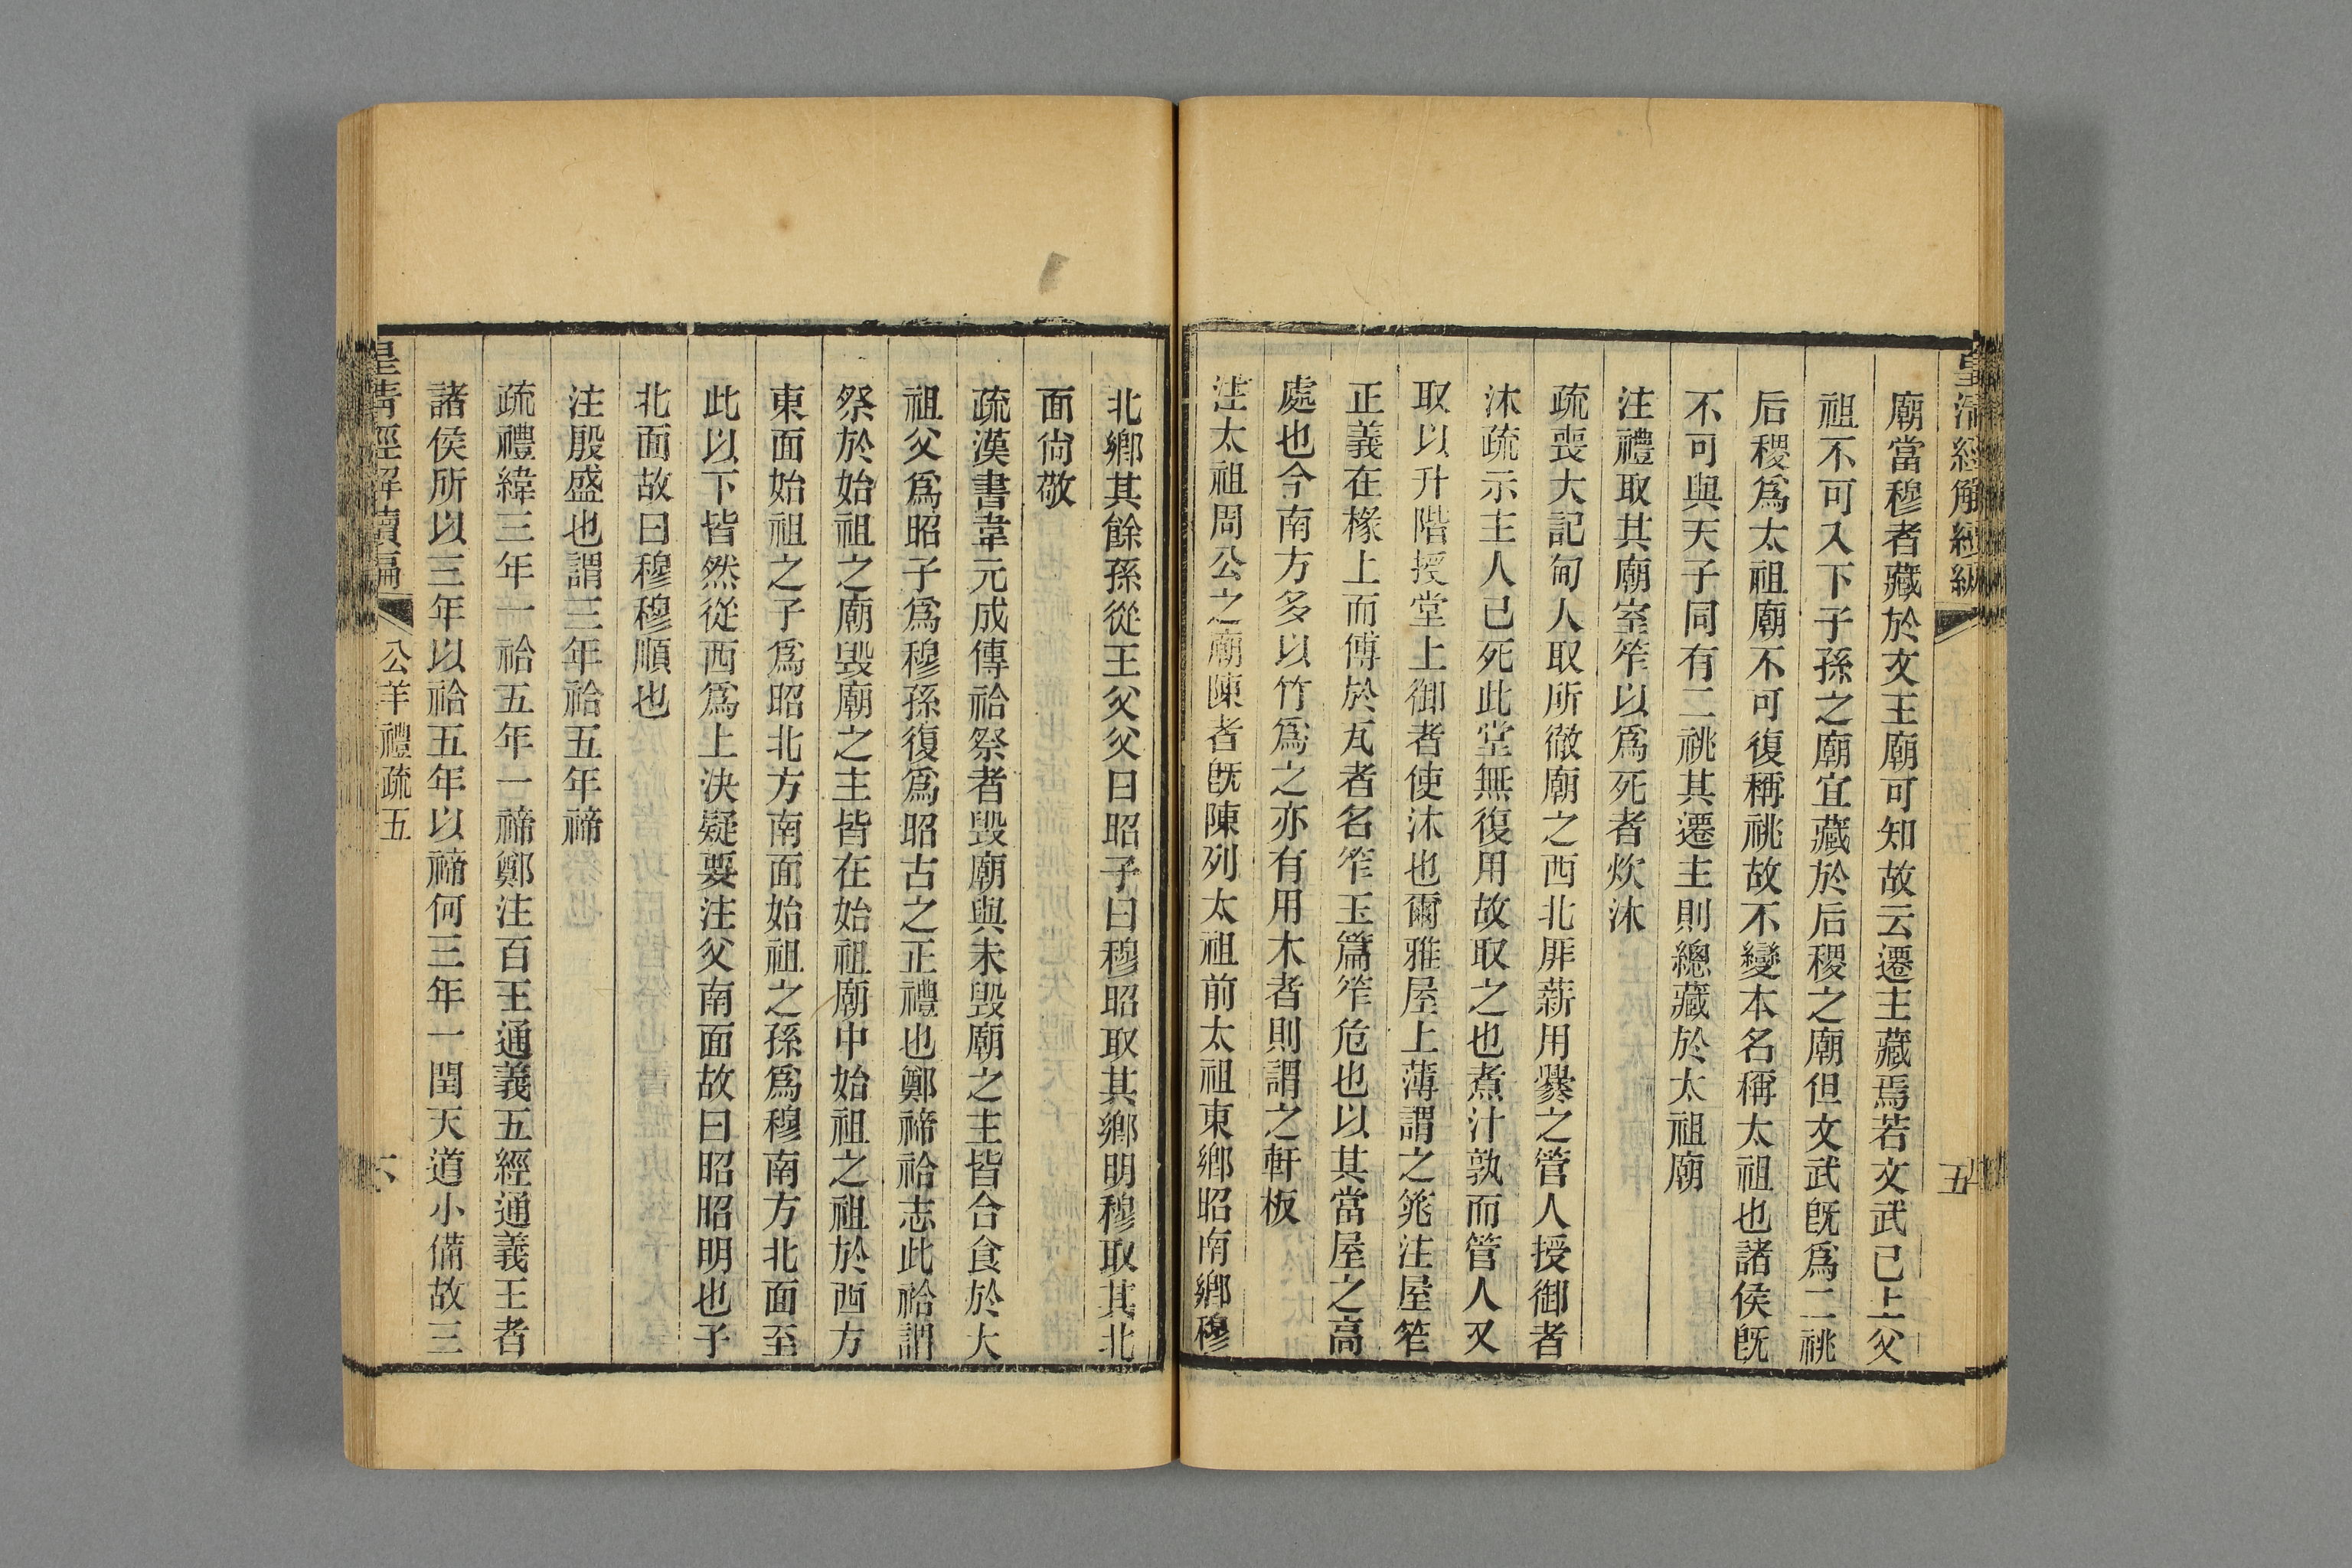 皇清經解續編
五
廟當穆者藏於文王廟可知故云遷主藏焉若文武已上父
祖不可入下子孫之廟宜藏於后稷之廟但文武旣爲二祧
后稷爲太祖廟不可復稱祧故不變本名稱太祖也諸侯旣
不可與天子同有二祧其遷主則總藏於太祖廟
注禮取其廟室笮以爲死者炊沐
疏喪大記甸人取所徹廟之西北厞薪用爨之管人授御者
沐疏示主人已死此堂無復用故取之也煮汁孰而管人又
取以升階授堂上御者使沐也爾雅屋上薄謂之筄注屋笮
正義在椽上而傅於瓦者名笮玉篇笮危也以其當屋之高
處也今南方多以竹爲之亦有用木者則謂之軒板
注太祖周公之廟陳者旣陳列太祖前太祖東鄉昭南鄉穆
北鄉其餘孫從王父父曰昭子曰穆昭取其鄉明穆取其北
面尙敬
疏漢書韋元成傳祫祭者毀廟與未毀廟之主皆合食於大
祖父爲昭子爲穆孫復爲昭古之正禮也鄭禘祫志此祫謂
祭於始祖之廟毀廟之主皆在始祖廟中始祖之祖於西方
東面始祖之子爲昭北方南面始祖之孫爲穆南方北面至
此以下皆然從西爲上決疑要注父南面故曰昭昭明也子
北面故曰穆穆順也
注殷盛也謂三年祫五年禘
疏禮緯三年一祫五年一禘鄭注百王通義五經通義王者
諸侯所以三年以祫五年以禘何三年一閏天道小備故三
皇清經解續編
公羊禮疏五
六